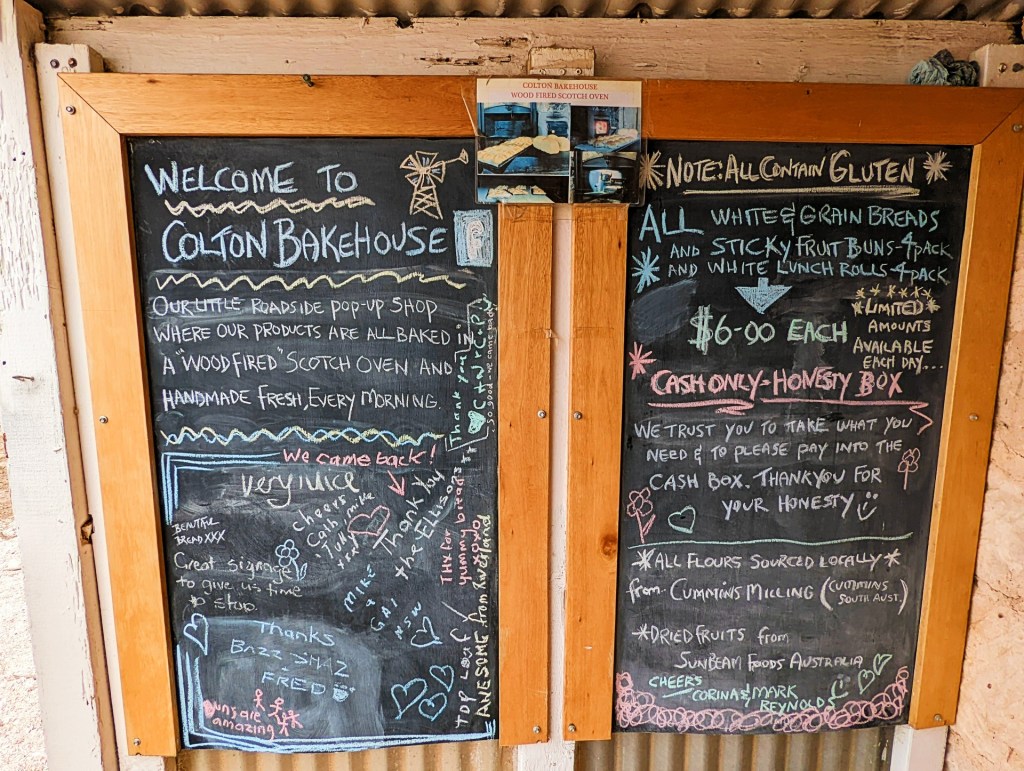 COLTON BAKEHOUSE
WOOD FIRED SCOTCH OVEN
WELCOME TO
COLTON BAKEHOUSE
OUR LITTLE ROADSIDE POP-UP SHOP
WHERE OUR PRODUCTS ARE ALL BAKED IN
A "WOOD FIRED" SCOTCH OVEN AND
HANDMADE FRESH, EVERY MORNING.
Thank you
SO GOOD WE CAME BACK
We came back!
very nice
cheers
Cath, mike
Tully
xxx
Thank you
the Ellisons
BEAUTIFUL
BREAD XXX
Great signage
to give us time
to stop.
MIKE
+
GAI
NSW
THX for
yummy bread
xoxo
TOP LOAF
AWESOME from
Thanks
BAZZ SHAZ
+
FRED
Buns are
amazing
NOTE: ALL CONTAIN GLUTEN
ALL WHITE & GRAIN BREADS
AND STICKY FRUIT BUNS-4 PACK
AND WHITE LUNCH ROLLS-4 PACK
$6-00 EACH
LIMITED
AMOUNTS
AVAILABLE
EACH DAY...
CASH ONLY-HONESTY BOX
WE TRUST YOU TO TAKE WHAT YOU
NEED & TO PLEASE PAY INTO THE
CASH BOX. THANKYOU FOR
YOUR HONESTY
*ALL FLOURS SOURCED LOCALLY*
from CUMMINS MILLING (CUMMINS
SOUTH AUST.)
*DRIED FRUITS from
SUNBEAM FOODS AUSTRALIA
CHEERS
CORINA & MARK
REYNOLDS